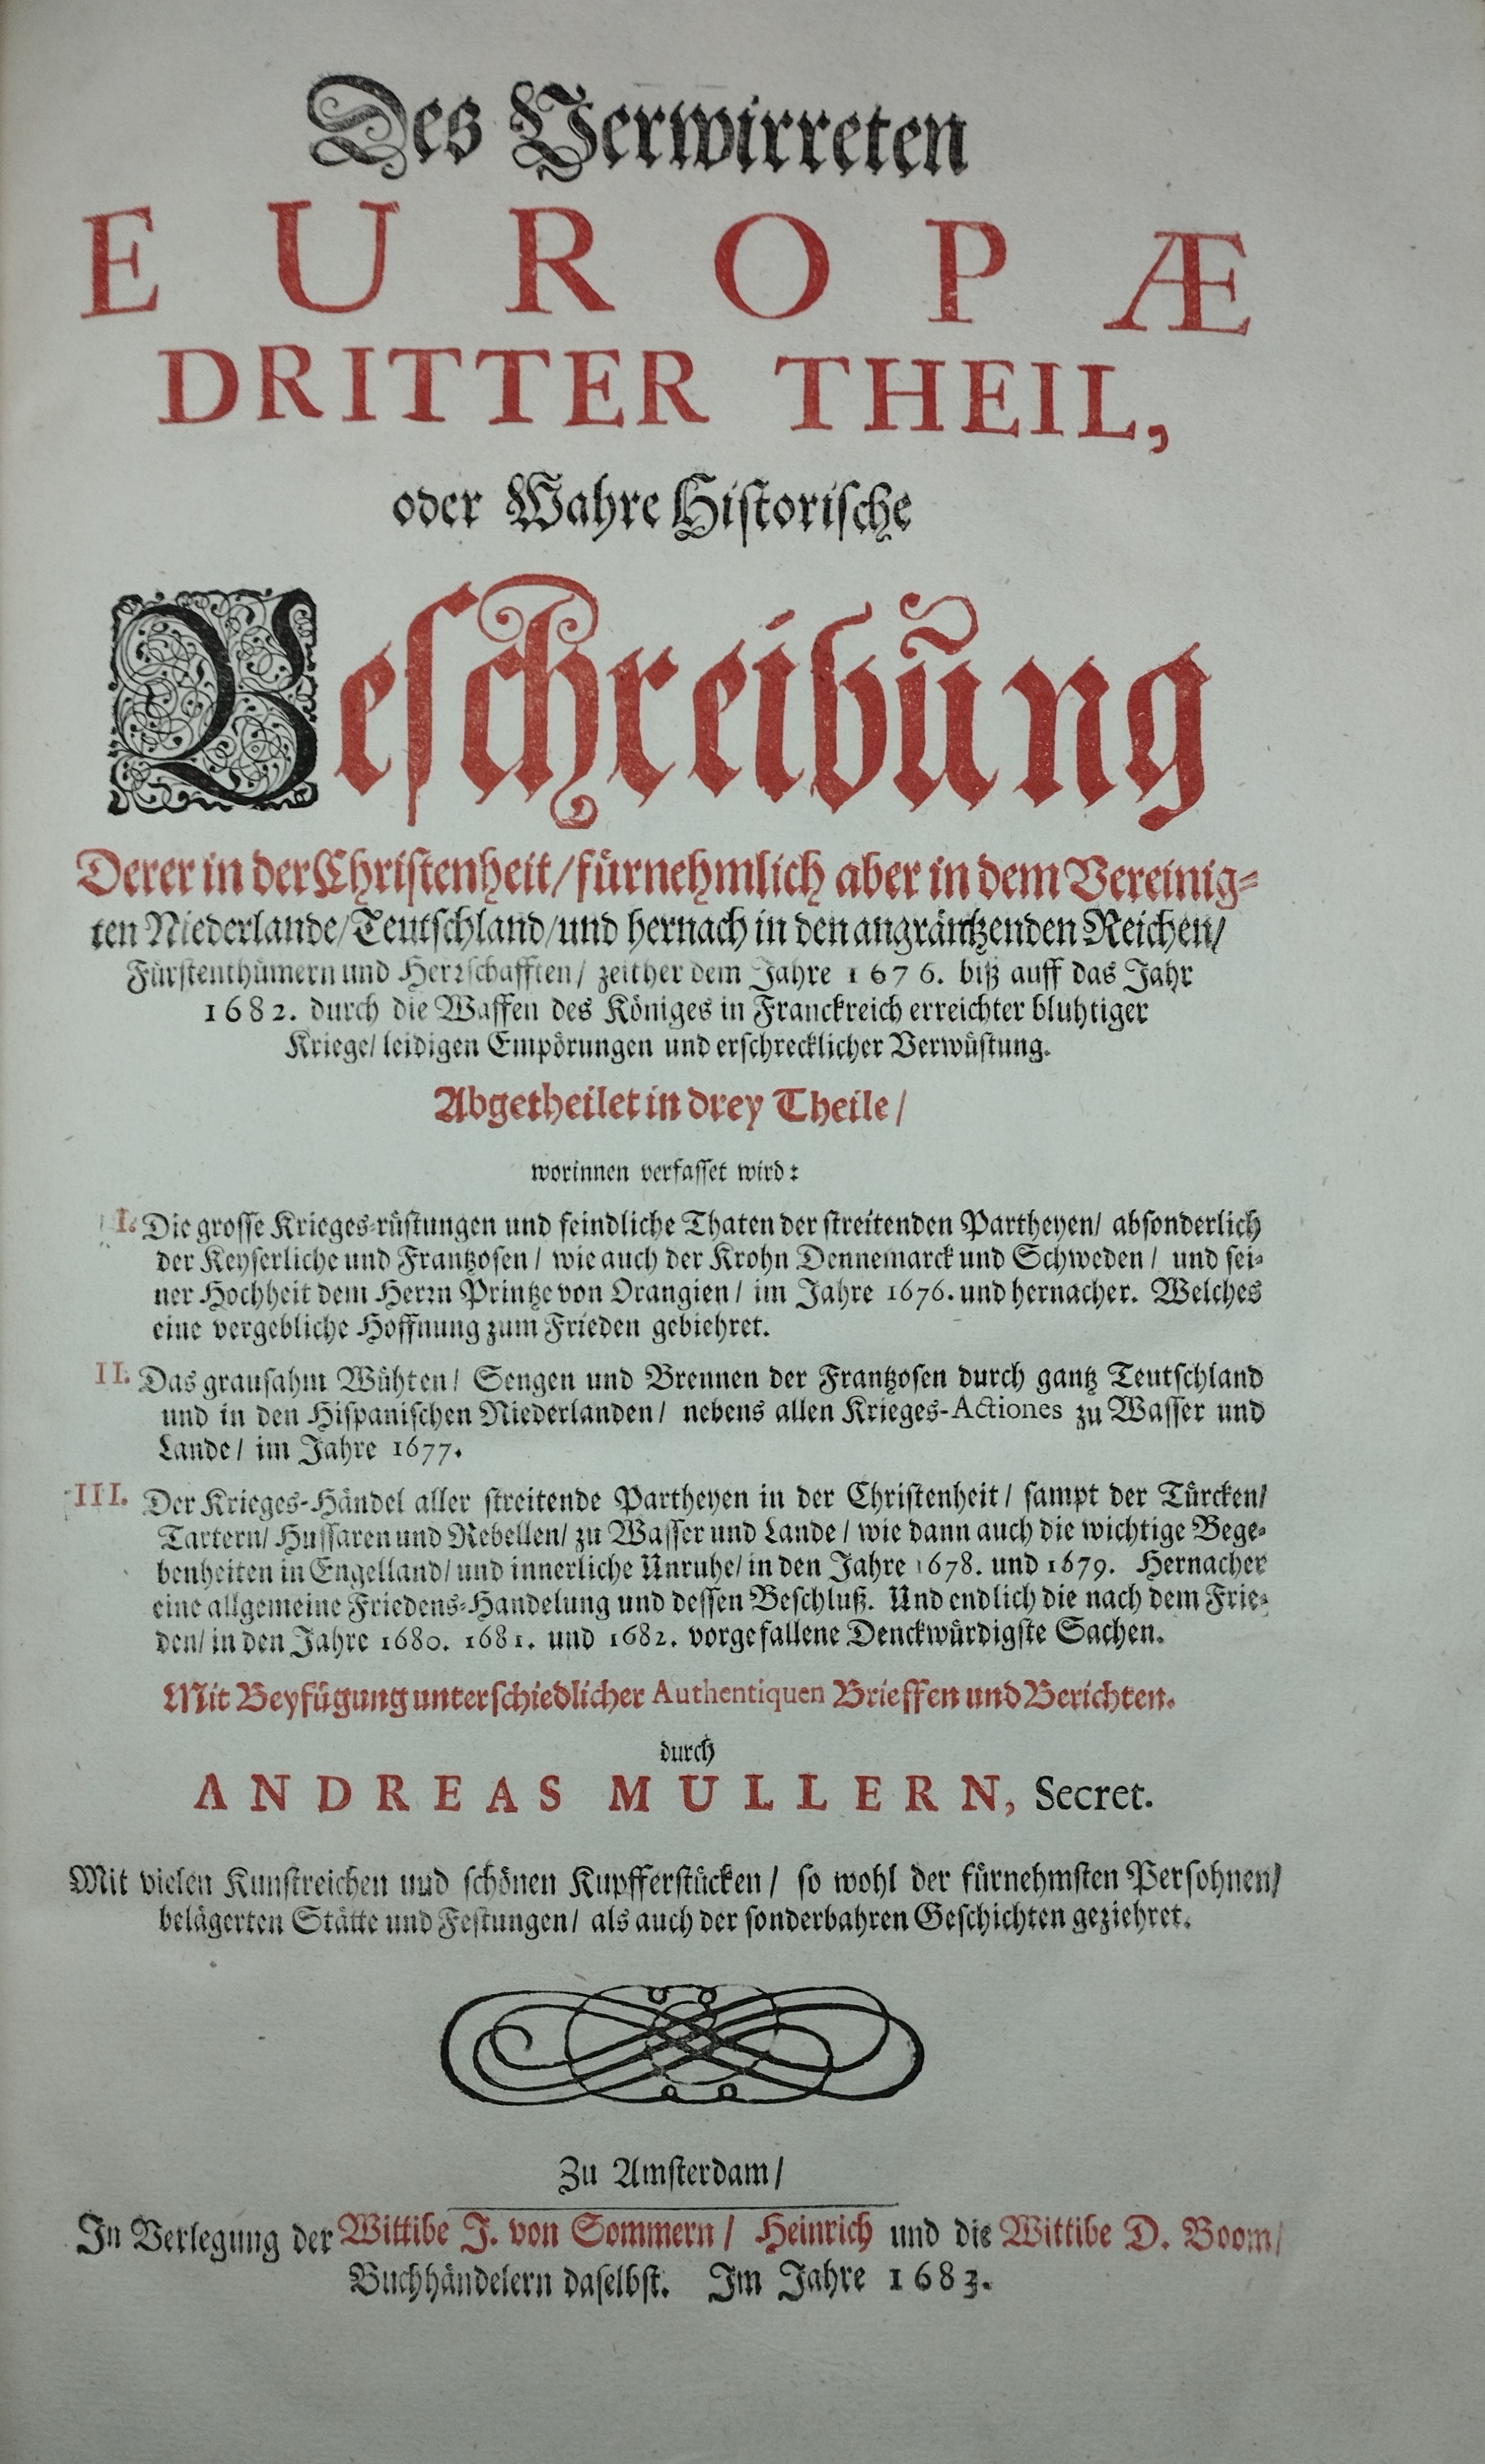 Des Verwirreten
EUROPÆ
DRITTER THEIL,
oder Wahre Historische
Beschreibung
Derer in der Christenheit/ fürnehmlich aber in dem Vereinig-
ten Niederlande/ Teutschland/ und hernach in den angräntzenden Reichen/
Fürstenthümern und Herrschafften/ zeither dem Jahre 1676. biß auff das Jahr
1682. durch die Waffen des Königes in Franckreich erreichter bluhtiger
Kriege/ leidigen Empörungen und erschrecklicher Verwüstung.
Abgetheilet in drey Theile/
worinnen verfasset wird:
I. Die grosse Krieges-rüstungen und feindliche Thaten der streitenden Partheyen/ absonderlich
der Keyserliche und Frantzosen/ wie auch der Krohn Dennemarck und Schweden/ und sei-
ner Hochheit dem Herrn Printze von Orangien/ im Jahre 1676. und hernacher. Welches
eine vergebliche Hoffnung zum Frieden gebiehret.
II. Das grausahm Wühten/ Sengen und Brennen der Frantzosen durch gantz Teutschland
und in den Hispanischen Niederlanden/ nebens allen Krieges-Actiones zu Wasser und
Lande/ im Jahre 1677.
III. Der Krieges-Händel aller streitende Partheyen in der Christenheit/ sampt der Türcken/
Tartern/ Hussaren und Rebellen/ zu Wasser und Lande/ wie dann auch die wichtige Bege-
benheiten in Engelland/ und innerliche Unruhe/ in den Jahre 1678. und 1679. Hernacher
eine allgemeine Friedens-Handelung und dessen Beschluß. Und endlich die nach dem Frie-
den/ in den Jahre 1680. 1681. und 1682. vorgefallene Denckwürdigste Sachen.
Mit Beyfügung unterschiedlicher Authentiquen Brieffen und Berichten.
durch
ANDREAS MULLERN, Secret.
Mit vielen Kunstreichen und schönen Kupfferstücken/ so wohl der fürnehmsten Persohnen/
belägerten Stätte und Festungen/ als auch der sonderbahren Geschichten geziehret.
Zu Amsterdam/
In Verlegung der Wittibe J. von Sommern/ Heinrich und die Wittibe D. Boom/
Buchhändelern daselbst. Im Jahre 1683.